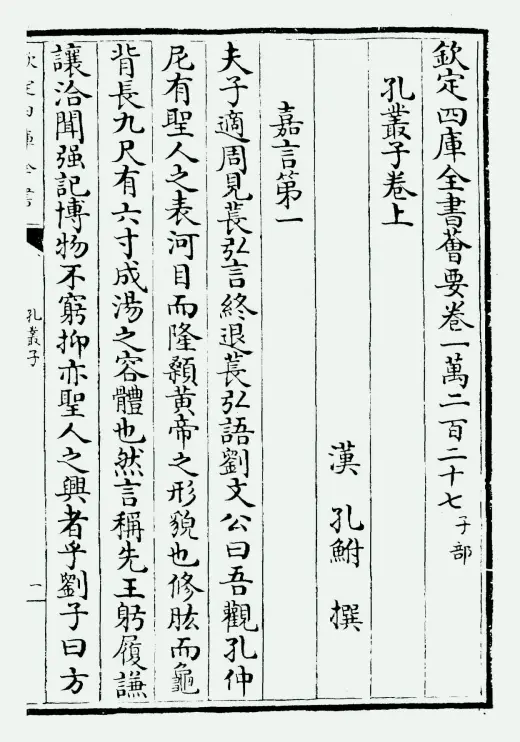 欽定四庫全書薈要卷一萬二百二十七子部
孔叢子卷上
漢 孔鮒 撰
嘉言第一
夫子適周見萇弘言終退萇弘語劉文公曰吾觀孔仲
尼有聖人之表河目而隆顙黃帝之形貌也修肱而龜
背長九尺有六寸成湯之容體也然言稱先王躬履謙
讓洽聞强記博物不窮抑亦聖人之興者乎劉子曰方
欽定四庫全書
孔叢子
一